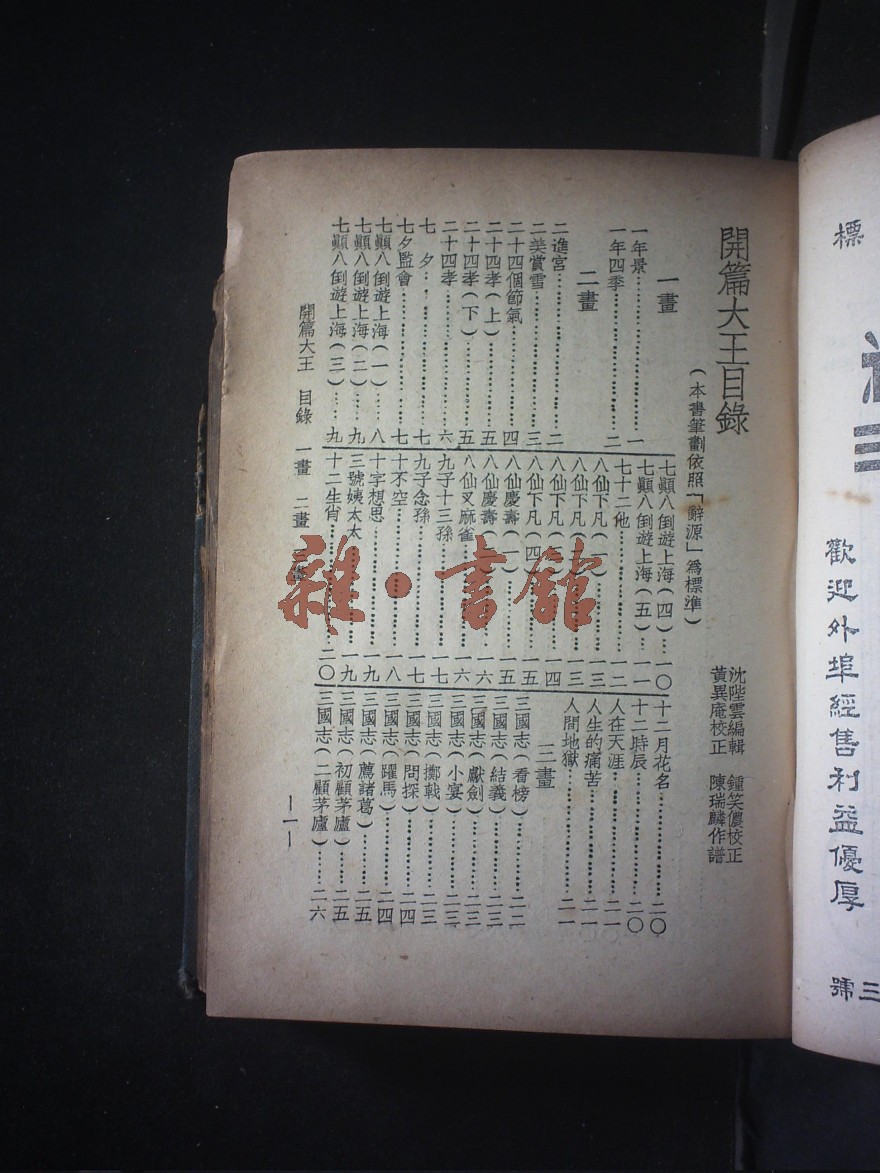 開篇大王目錄
(本書筆劃依照「辭源」為標準)
沈陛雲編輯 鍾笑儂校正
黃異庵校正 陳瑞麟作譜
一畫
一年景……一
一年四季……二
二畫
二進宮……二
二美賞雪……三
二十四個節氣……四
二十四孝(上)……五
二十四孝(下)……五
二十四孝……六
七夕……七
七夕監會……七
七顚八倒遊上海(一)……八
七顚八倒遊上海(二)……九
七顚八倒遊上海(三)……九
七顚八倒遊上海(四)……一〇
七顚八倒遊上海(五)……一一
七十二他……一二
八仙下凡(一)……一三
八仙下凡……一三
八仙下凡……一四
八仙下凡(四)……一五
八仙慶壽(一)……一五
八仙慶壽……一六
八仙叉麻雀……一六
九子十三孫……一七
九子念孫……一七
十不空……一八
十字想思……一九
三號姨太太……一九
十二生肖……二〇
十二月花名……二〇
十二時辰……二〇
人在天涯……二一
人生的痛苦……二一
人間地獄……二一
三畫
三國志(看榜)……二二
三國志(結義)……二三
三國志(獻劍)……二三
三國志(小宴)……二三
三國志(擲戟)……二三
三國志(問探)……二四
三國志(躍馬)……二四
三國志(薦諸葛)……二五
三國志(初顧茅廬)……二五
三國志(二顧茅廬)……二六
開篇大王 目錄 一畫 二畫
—一—
雜·書館
標
歡迎外埠經售利益優厚
三號